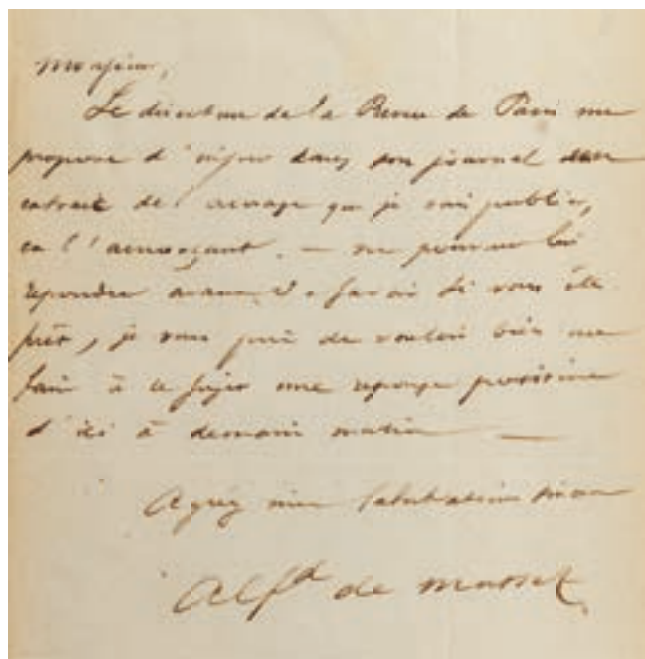 Monsieur,
Le directeur de la Revue de Paris me
propose d'insérer dans son journal un
extrait de l'ouvrage que je vais publier,
en l'annonçant. — ne pouvant lui
répondre avant de savoir si vous êtes
prêt, je vous prie de vouloir bien me
faire à ce sujet une réponse positive
d'ici à demain matin —
Agréez mes salutations
Alf^d de Musset